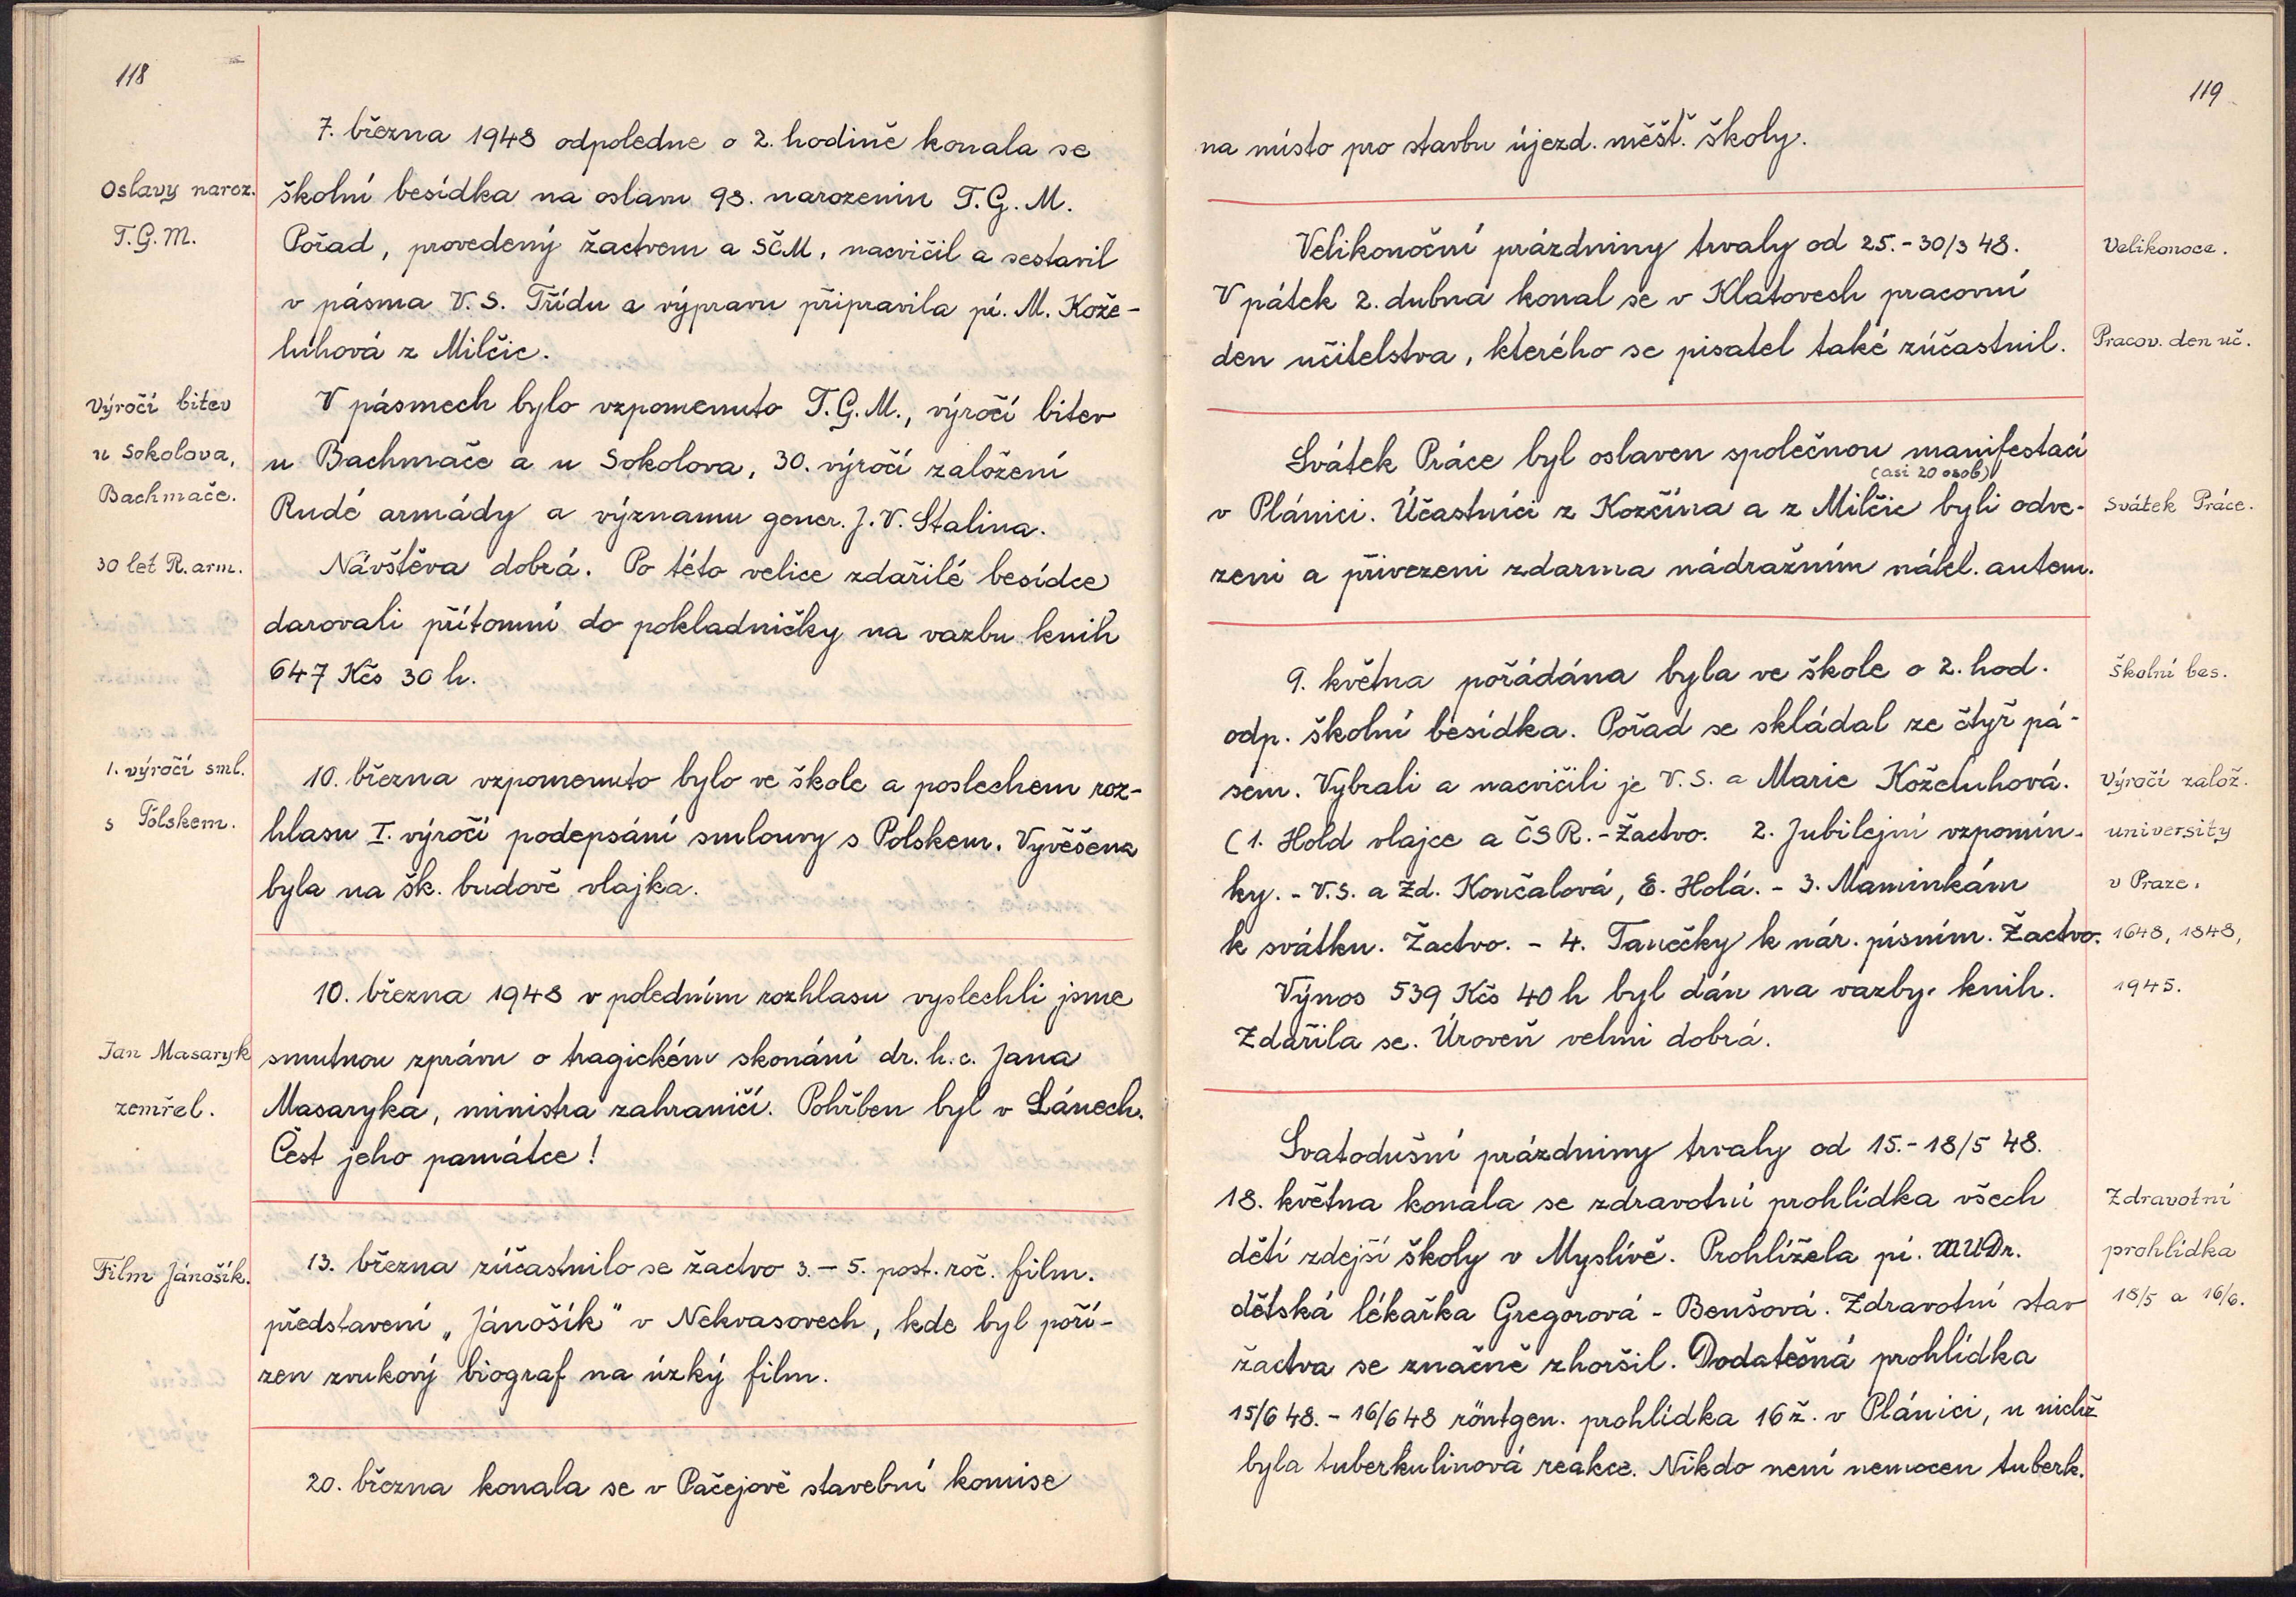 118
7. března 1948 odpoledne o 2. hodině konala se
Oslavy naroz.
školní besídka na oslavu 98. narozenin T.G.M.
T.G.M.
Pořad, provedený žactvem a SČM, nacvičil a sestavil
v pásma V.S. Třídu a výpravu připravila pí. M. Kože-
luhová z Milčic.
Výročí bitev
V pásmech bylo vzpomenuto T.G.M., výročí bitev
u Sokolova,
u Bachmače a u Sokolova, 30. výročí založení
Bachmače.
Rudé armády a významu gener. J.V. Stalina.
30 let R. arm.
Návštěva dobrá. Po této velice zdařilé besídce
darovali přítomní do pokladničky na vazbu knih
647 Kčs 30 h.
1. výročí sml.
10. března vzpomenuto bylo ve škole a poslechem roz-
s Polskem.
hlasu I. výročí podepsání smlouvy s Polskem. Vyvěšena
byla na šk. budově vlajka.
10. března 1948 v poledním rozhlasu vyslechli jsme
Jan Masaryk
smutnou zprávu o tragickém skonání dr. h. c. Jana
zemřel.
Masaryka, ministra zahraničí. Pohřben byl v Lánech.
Čest jeho památce!
Film Jánošík.
13. března zúčastnilo se žactvo 3.-5. post. roč. film.
představení „Jánošík" v Nekvasovech, kde byl poří-
zen zvukový biograf na úzký film.
20. března konala se v Pačejově stavební komise
119
na místo pro stavbu újezd. měšť. školy.
Velikonoční prázdniny trvaly od 25.-30/3 48.
Velikonoce.
V pátek 2. dubna konal se v Klatovech pracovní
den učitelstva, kterého se pisatel také zúčastnil.
Pracov. den uč.
Svátek Práce byl oslaven společnou manifestací
(asi 20 osob)
v Plánici. Účastníci z Kozčína a z Milčic byli odve-
Svátek Práce.
zeni a přivezeni zdarma nádražním nákl. autem.
9. května pořádána byla ve škole o 2. hod.
Školní bes.
odp. školní besídka. Pořad se skládal ze čtyř pá-
sem. Vybrali a nacvičili je V.S. a Marie Koželuhová.
Výročí založ.
(1. Hold vlajce a ČSR.-Žactvo. 2. Jubilejní vzpomín-
university
ky. - V.S. a Zd. Končalová, E. Holá. - 3. Maminkám
v Praze,
k svátku. Žactvo. - 4. Tanečky k nár. písním. Žactvo.
1648, 1848,
Výnos 539 Kčs 40 h byl dán na vazby knih.
1945.
Zdařila se. Úroveň velmi dobrá.
Svatodušní prázdniny trvaly od 15.-18/5 48.
18. května konala se zdravotní prohlídka všech
Zdravotní
dětí zdejší školy v Myslívě. Prohlížela pí. MUDr.
prohlídka
dětská lékařka Gregorová - Benšová. Zdravotní stav
18/5 a 16/6.
žactva se značně zhoršil. Dodatečná prohlídka
15/6 48. - 16/6 48 röntgen. prohlídka 16 ž. v Plánici, u nichž
byla tuberkulinová reakce. Nikdo není nemocen tuberk.